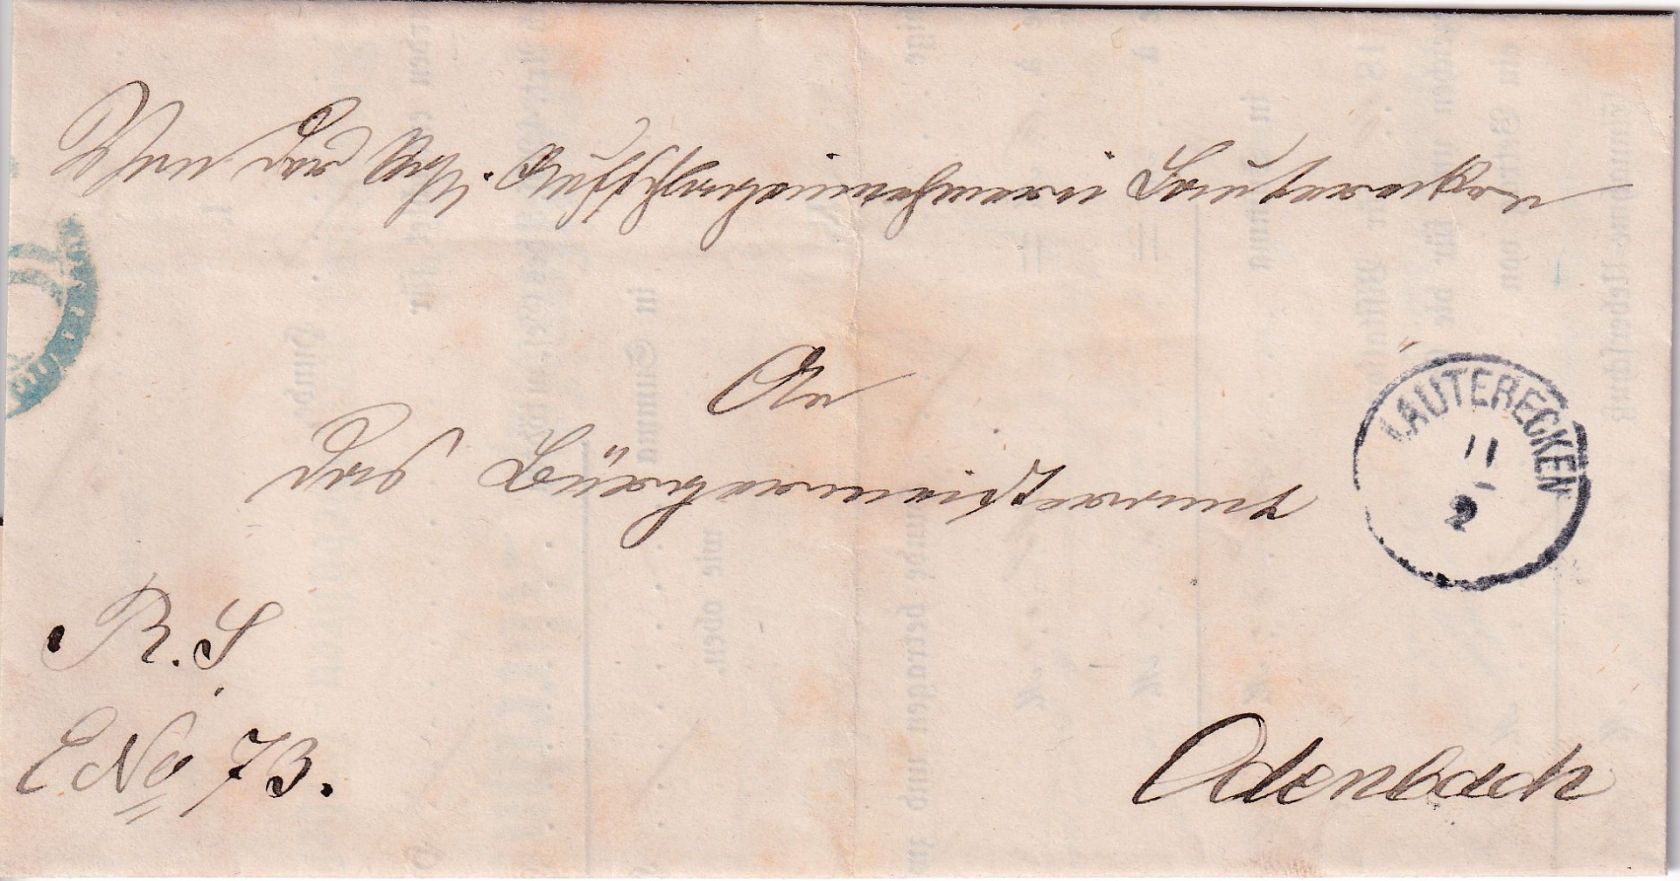 Von der Kgl. Aufschlageinnehmerei Lauterecken
An
das Bürgermeisteramt
LAUTERECKEN
11
2
R. S.
E No 73.
Odenbach